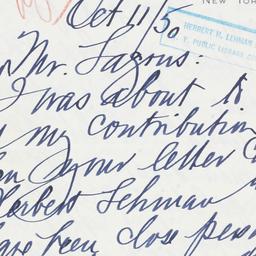 NEW YOR
Oct 11/50
HERBERT H. LEHMAN
Y. PUBLIC LIBRARY
Mr. Lazrus:
I was about to
my contribution
your letter
Herbert Lehman
have been close